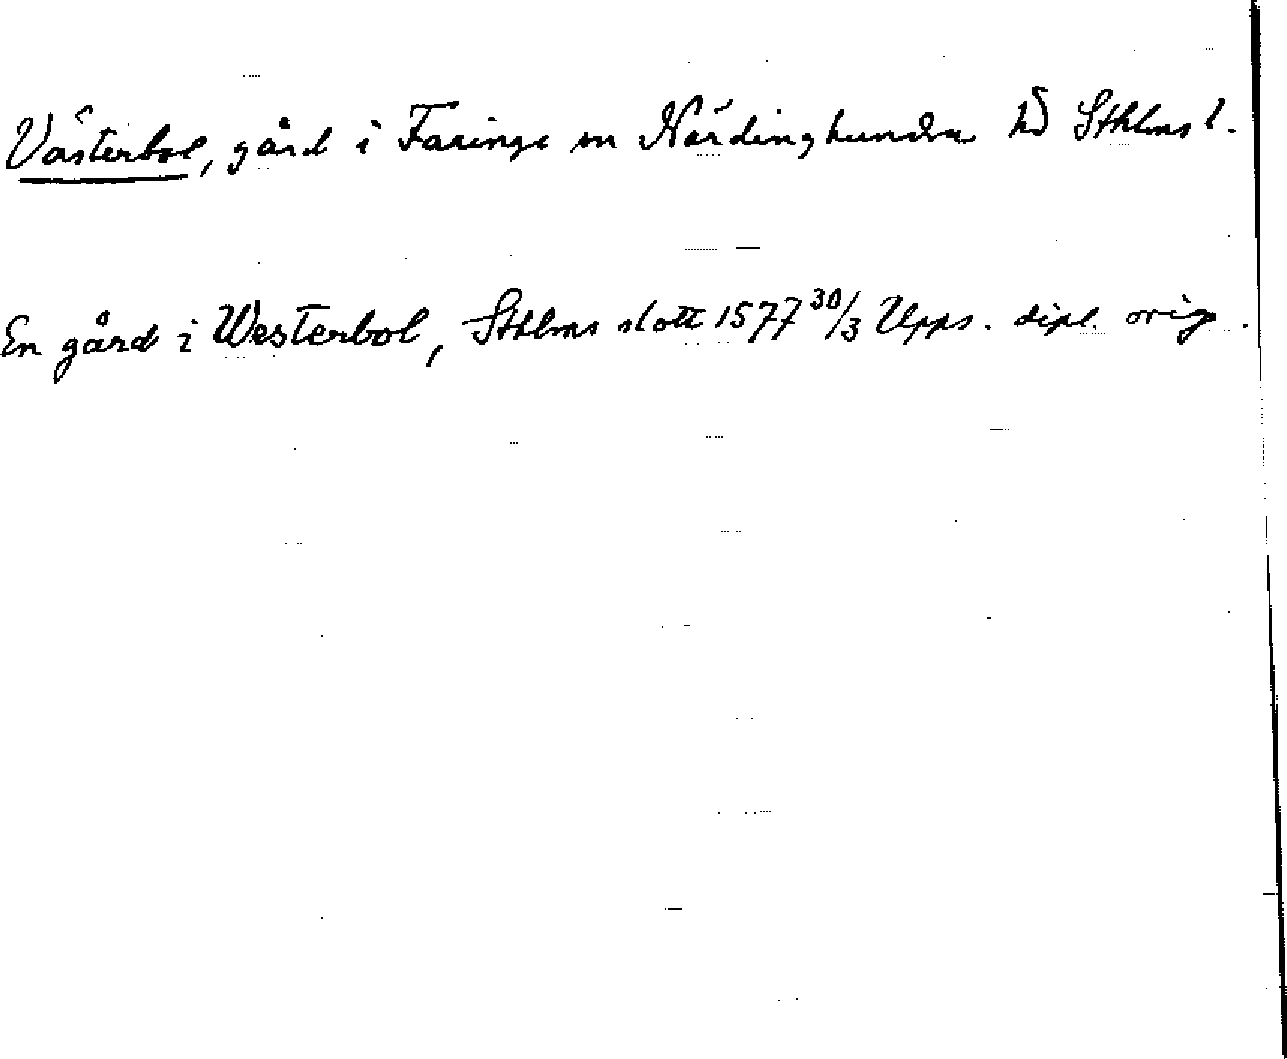 Västerbol, gård i Faringe sn Närdinghundra hd Sthlms l.
En gård i Westerbol, Sthlms slott 1577 30/3 Upps. dipl. orig.